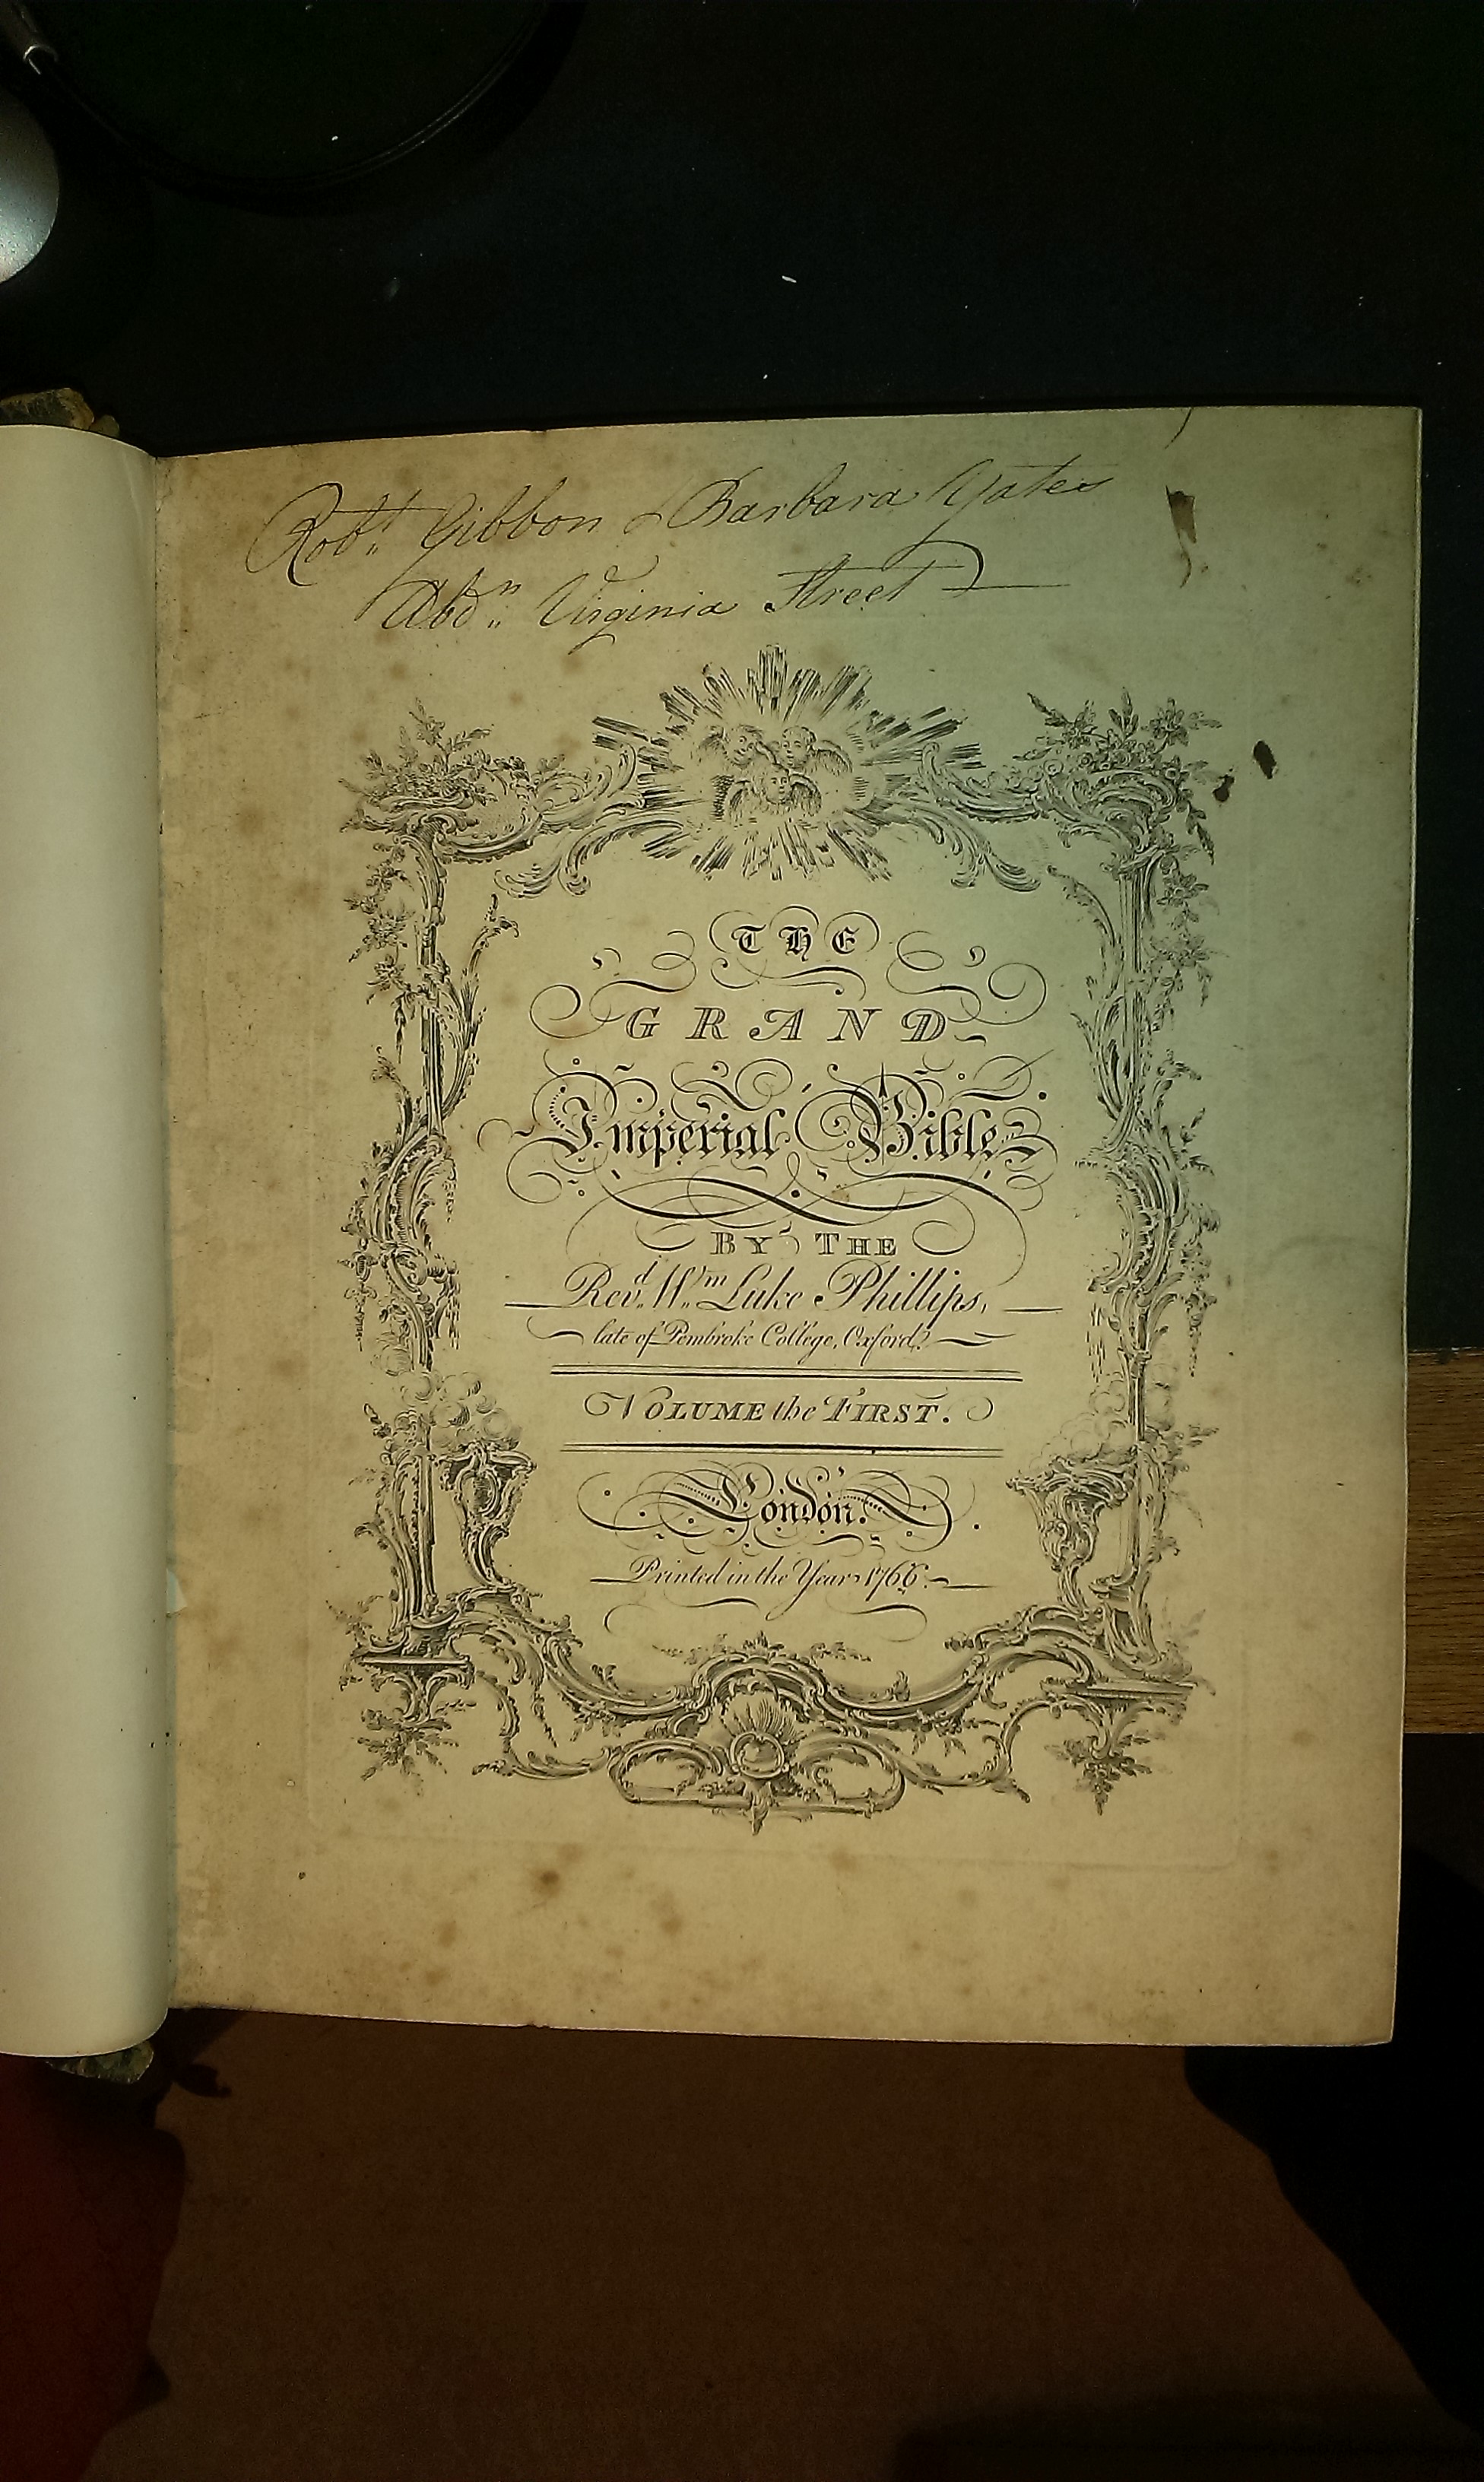 Robt. Gibbon & Barbara Yates
Abdn. Virginia Street
THE
GRAND
Imperial Bible
BY THE
Revd. Wm. Luke Phillips,
late of Pembroke College, Oxford.
VOLUME the FIRST.
London.
Printed in the Year 1766.